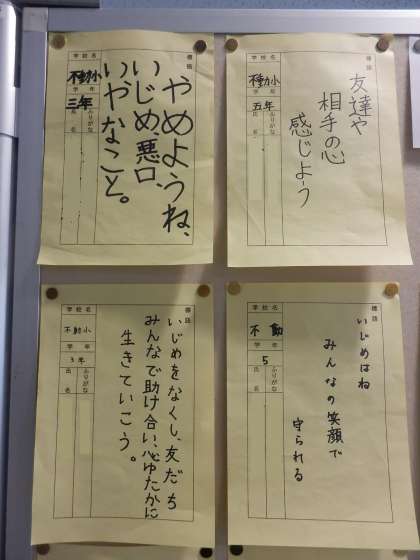 標語
やめようね、
いじめ、悪口、
いやなこと。
学校名
不動小
学年
三年
ふりがな
氏名
標語
友達や
相手の心
感じよう
学校名
不動小
学年
五年
ふりがな
氏名
標語
いじめをなくし、友だち
みんなで助け合い、心ゆたかに
生きていこう。
学校名
不動小
学年
3年
ふりがな
氏名
標語
いじめはね
みんなの笑顔で
守られる
学校名
不動
学年
5
ふりがな
氏名